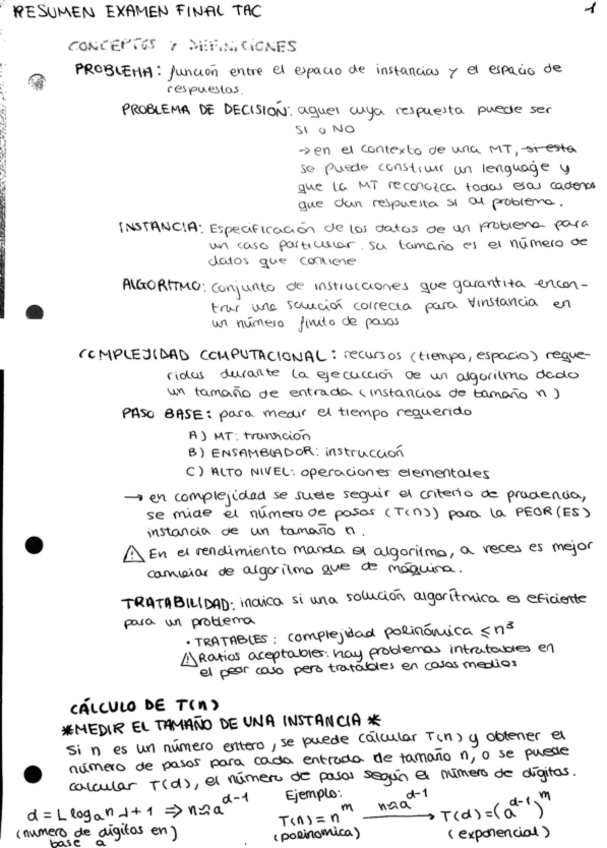 RESUMEN EXAMEN FINAL TAC 1
CONCEPTOS Y DEFINICIONES
PROBLEMA: función entre el espacio de instancias y el espacio de
respuestas.
PROBLEMA DE DECISIÓN: aquel cuya respuesta puede ser
SI o NO
→ en el contexto de una MT, si esta
se puede construir un lenguaje y
que la MT reconozca todas esas cadenas
que dan respuesta sí al problema.
INSTANCIA: Especificación de los datos de un problema para
un caso particular. Su tamaño es el número de
datos que contiene
ALGORITMO: conjunto de instrucciones que garantiza encon-
trar una solución correcta para ∀instancia en
un número finito de pasos
COMPLEJIDAD COMPUTACIONAL: recursos (tiempo, espacio) reque-
ridos durante la ejecución de un algoritmo dado
un tamaño de entrada (instancias de tamaño n)
PASO BASE: para medir el tiempo requerido
A) MT: transición
B) ENSAMBLADOR: instrucción
C) ALTO NIVEL: operaciones elementales
→ en complejidad se suele seguir el criterio de prudencia,
se mide el número de pasos (T(n)) para la PEOR(ES)
instancia de un tamaño n.
⚠ En el rendimiento manda el algoritmo, a veces es mejor
cambiar de algoritmo que de máquina.
TRATABILIDAD: indica si una solución algorítmica es eficiente
para un problema
· TRATABLES: complejidad polinómica ≤ n³
⚠ Ratios aceptables: hay problemas intratables en
el peor caso pero tratables en casos medios
CÁLCULO DE T(n)
*MEDIR EL TAMAÑO DE UNA INSTANCIA*
Si n es un número entero, se puede calcular T(n) y obtener el
número de pasos para cada entrada de tamaño n, o se puede
calcular T(d), el número de pasos según el número de dígitos.
Ejemplo:
d = ⌊logₐ n⌋ + 1 ⇒ n ≈ a^(d-1) T(n) = n^m —n≈a^(d-1)→ T(d) = (a^(d-1))^m
(numero de dígitos en) (polinomica) (exponencial)
base a